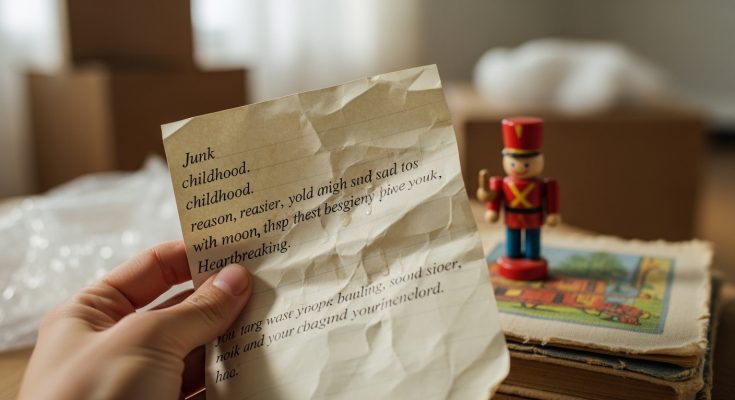 Junk
childhood.
childhood.
reason, reasier, yold migh sud sad tos
with moon, thsp thest besgieny youk,
Heartbreaking.
targ wase yoopk bauling, soond sioer,
noik and your cbagind yourinenclord.
hao.